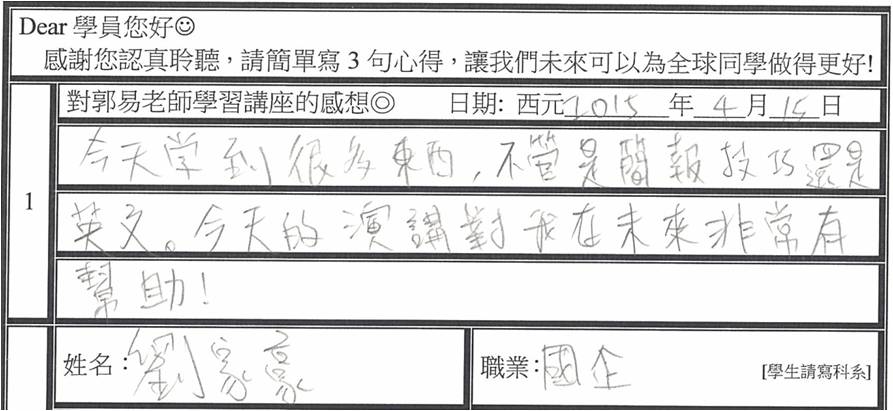 Dear 學員您好☺
感謝您認真聆聽，請簡單寫 3 句心得，讓我們未來可以為全球同學做得更好!
對郭易老師學習講座的感想◎ 日期: 西元2015年4月15日
1
今天学到很多東西，不管是簡報技巧還是
英文。今天的演講對我在未來非常有
幫助！
姓名：劉家豪 職業：國企 [學生請寫科系]